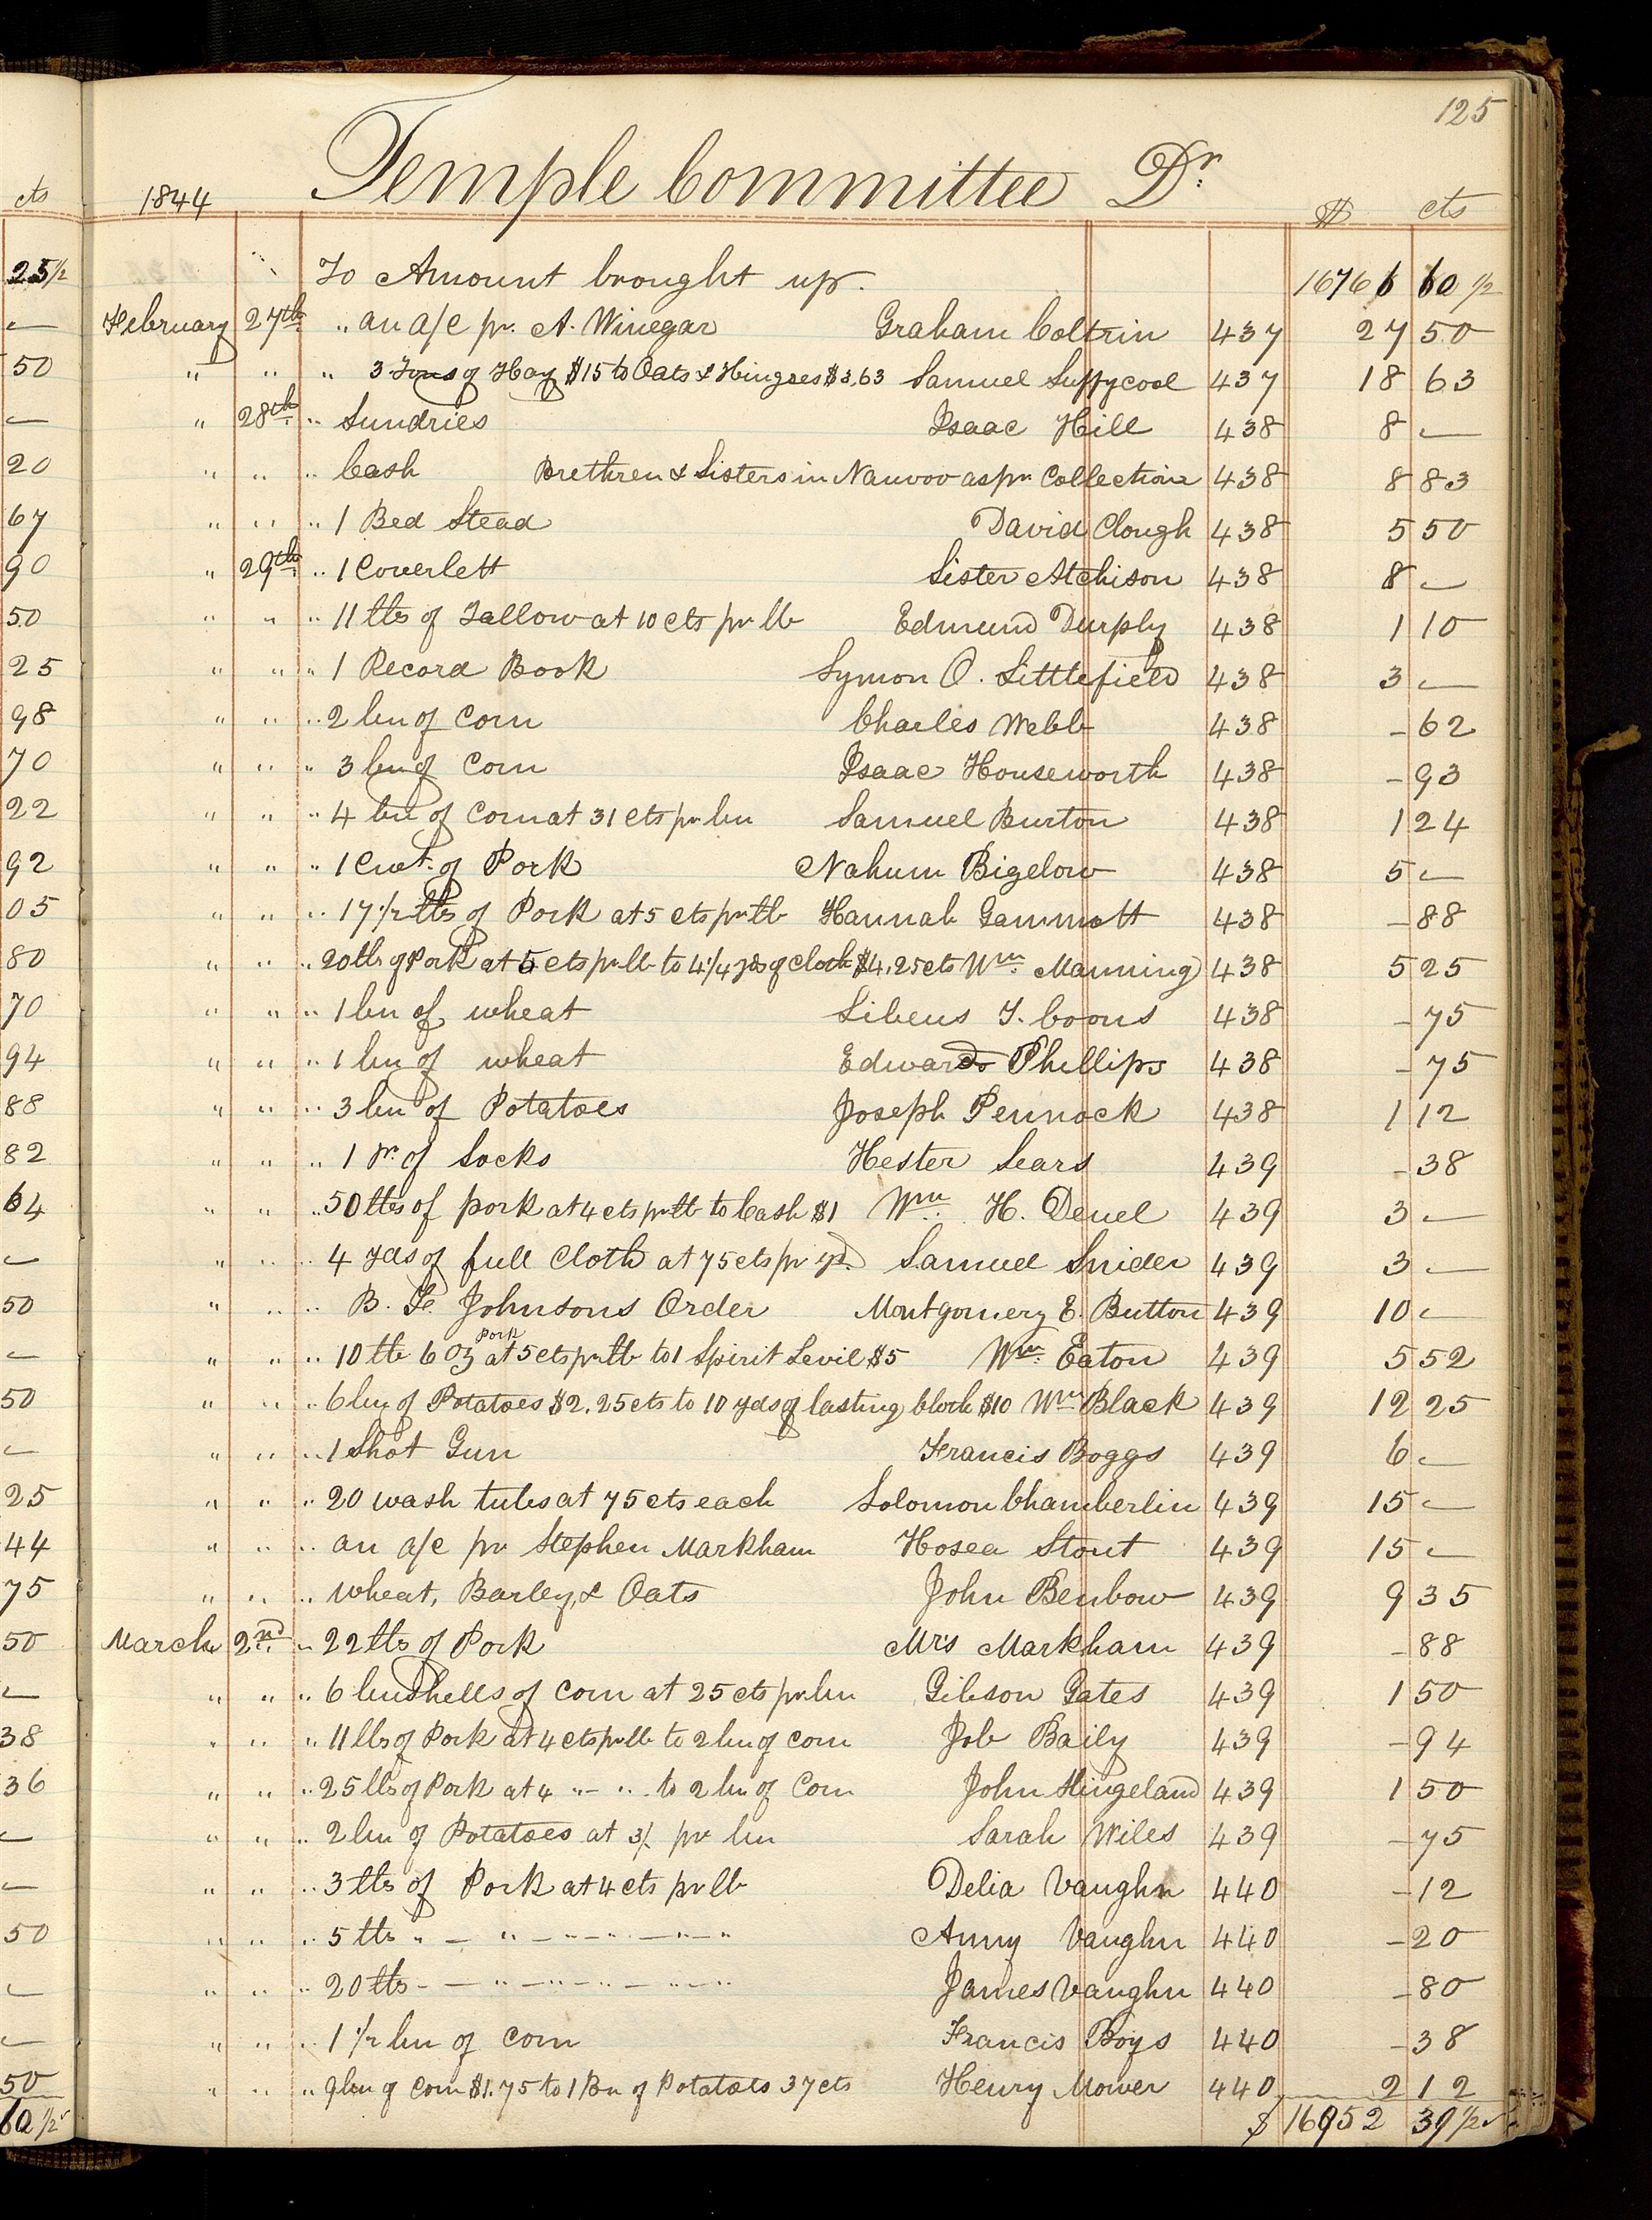 125
cts 1844 Temple Committee Dr. $ cts
25 1/2 To Amount brought up. 16766 60 1/2
— February 27th " an a/c pr. A. Winegar Graham Coltrin 437 27 50
50 " " " 3 Tons of Hay $15 to Oats & Hinges $3,63 Samuel 437 18 63
— " 28th " Sundries Isaac Hill 438 8 —
20 " " " Cash Brethren & Sisters in Nauvoo as pr Collection 438 8 83
67 " " " 1 Bed Stead David Clough 438 5 50
90 " 29th " 1 Coverlett Sister Atchison 438 8 —
50 " " " 11 lbs of Tallow at 10 cts pr lb Edmund Durphy 438 1 10
25 " " " 1 Record Book Symon O. Littlefield 438 3 —
98 " " " 2 bu of Corn Charles Webb 438 - 62
70 " " " 3 bu of Corn Isaac Houseworth 438 - 93
22 " " " 4 bu of Corn at 31 cts pr bu Samuel Burton 438 1 24
92 " " " 1 Cwt. of Pork Nahum Bigelow 438 5 —
05 " " " 17 1/2 lbs of Pork at 5 cts pr lb Hannah Gammott 438 - 88
80 " " " 20 lbs of Pork at 5 cts pr lb to 4 1/4 yds of Cloth $4.25 cts Wm. Manning 438 5 25
70 " " " 1 bu of wheat Libeus T. Coons 438 - 75
94 " " " 1 bu of wheat Edward Phillips 438 - 75
88 " " " 3 bu of Potatoes Joseph Pennock 438 1 12
82 " " " 1 Pr. of Socks Hester Sears 439 - 38
64 " " " 50 lbs of pork at 4 cts pr lb to Cash $1 Wm. H. Deuel 439 3 —
— " " " 4 yds of full Cloth at 75 cts pr yd. Samuel Snider 439 3 —
50 " " " B. F. Johnsons Order Montgomery E. Button 439 10 —
— " " " 10 lb 6 oz Pork at 5 cts pr lb to 1 Spirit Levil $5 Wm. Eaton 439 5 52
50 " " " 6 bu of Potatoes $2.25 cts to 10 yds of lasting Cloth $10 Wm Black 439 12 25
— " " " 1 Shot Gun Francis Boggs 439 6 —
25 " " " 20 wash tubs at 75 cts each Solomon Chamberlin 439 15 —
44 " " " an a/c pr Stephen Markham Hosea Stout 439 15 —
75 " " " wheat, Barley, & Oats John Benbow 439 9 35
50 March 2nd " 22 lbs of Pork Mrs Markham 439 - 88
— " " " 6 bushells of Corn at 25 cts pr bu Gibson Gates 439 1 50
38 " " " 11 lbs of Pork at 4 cts pr lb to 2 bu of Corn Job Baily 439 - 94
36 " " " 25 lbs of Pork at 4 " - " to 2 bu of Corn John 439 1 50
— " " " 2 bu of Potatoes at 3/. pr bu Sarah Wiles 439 - 75
— " " " 3 lbs of Pork at 4 cts pr lb Delia Vaughn 440 - 12
50 " " " 5 lbs " — " — " — " — " Anny Vaughn 440 - 20
— " " " 20 lbs - — " — " — " — " James Vaughn 440 - 80
— " " " 1 1/2 bu of Corn Francis Boys 440 - 38
50 " " " 9 bu of Corn $1.75 to 1 Bu of Potatoes 37 cts Henry Mower 440 2 12
60 1/2 $ 16952 39 1/2